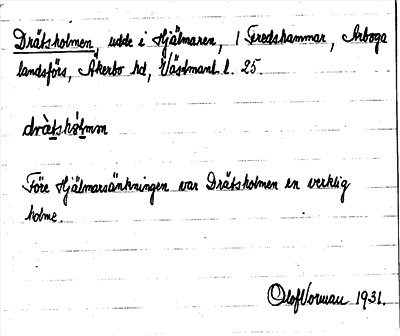 Drätsholmen, udde i Hjälmaren, 1 Feredshammar, Arboga
landsförs, Åkerbo hd, Västmanl. l. 25.
drätshòlmm
Före Hjälmarsänkningen var Drätsholmen en verklig
holme.
Olof Vorman 1931.